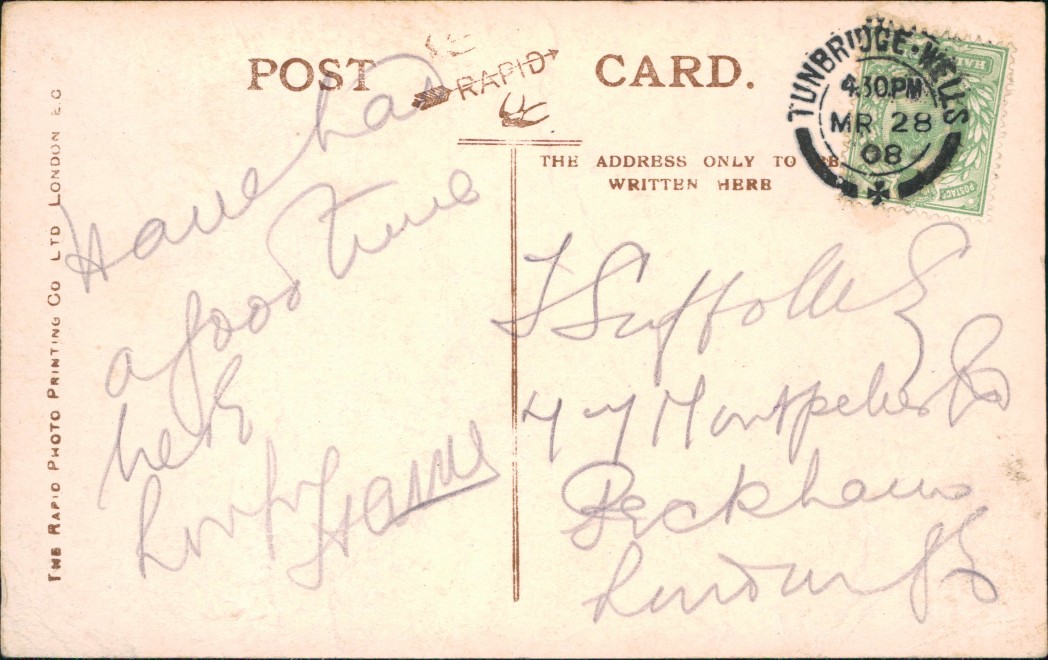 POST CARD.
RAPID
THE ADDRESS ONLY TO BE
WRITTEN HERE
TUNBRIDGE·WELLS
4.30PM
MR 28
08
POSTAGE
THE RAPID PHOTO PRINTING CO LTD LONDON E.C
Have had
a good time
here
Suffolk
Montpelier Rd
Peckham
London S E